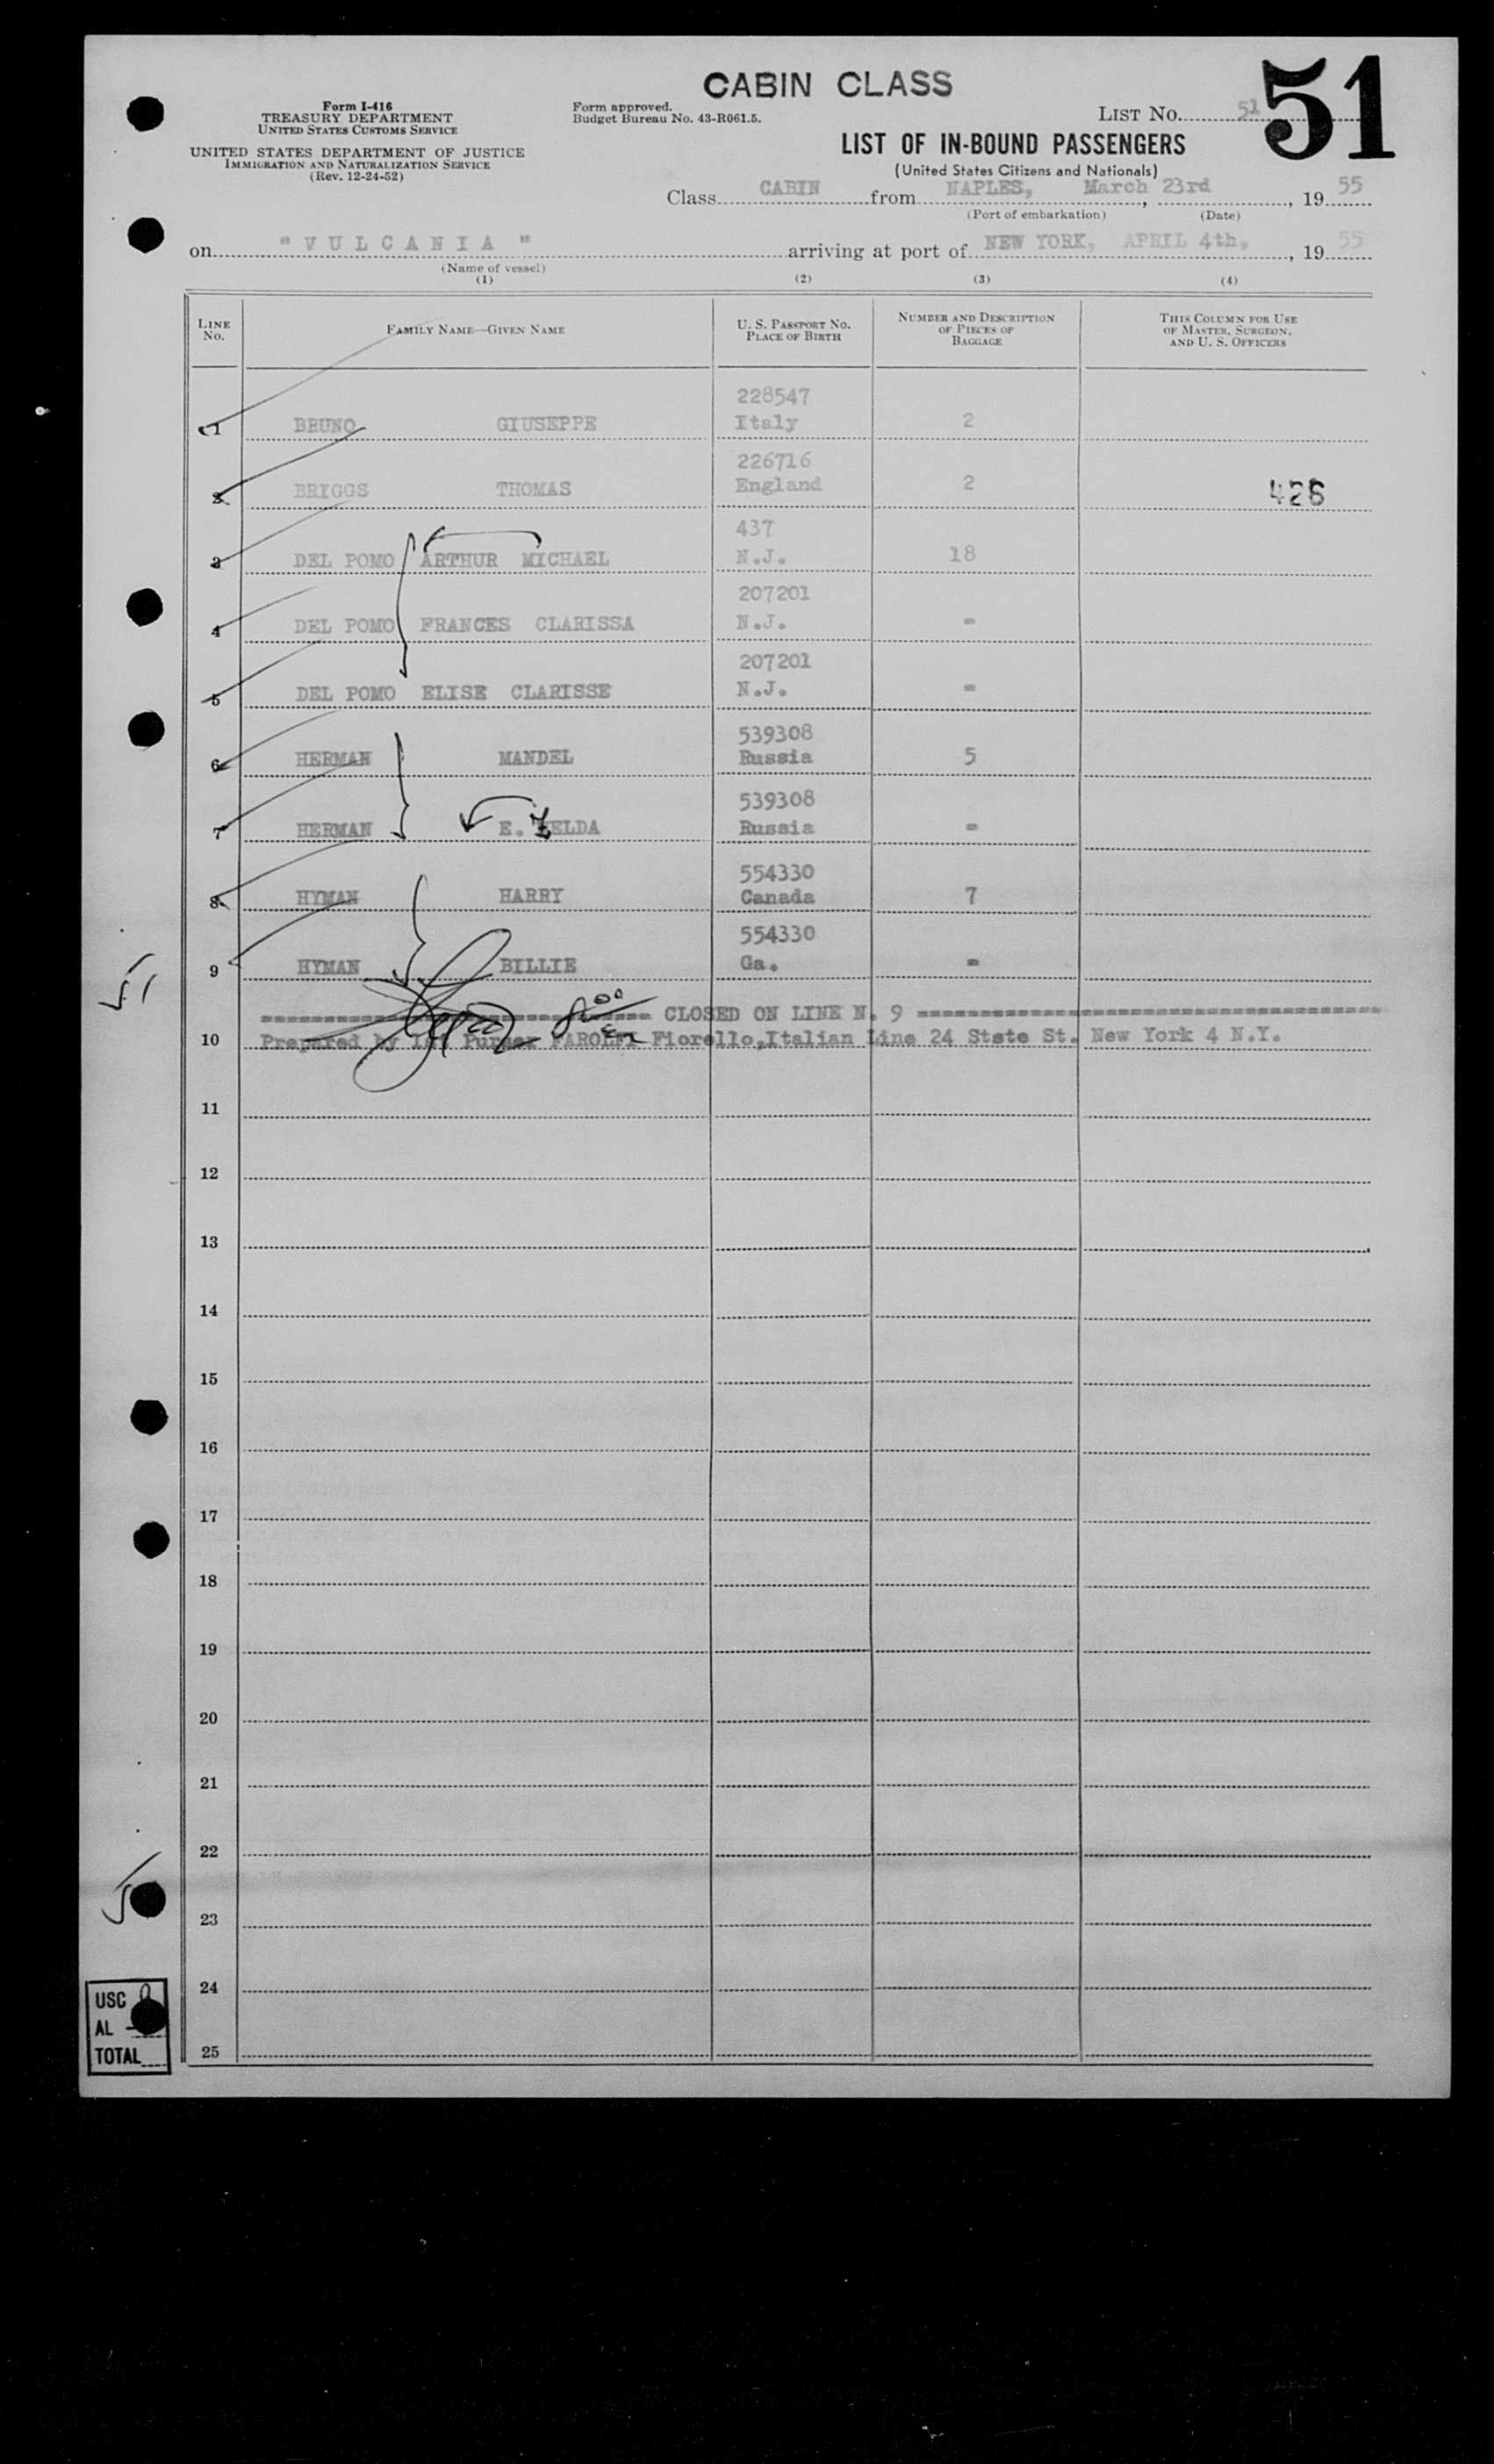 CABIN CLASS
51
Form I-416
TREASURY DEPARTMENT
UNITED STATES CUSTOMS SERVICE
UNITED STATES DEPARTMENT OF JUSTICE
IMMIGRATION AND NATURALIZATION SERVICE
(Rev. 12-24-52)
Form approved.
Budget Bureau No. 43-R061.5.
LIST No. 51
LIST OF IN-BOUND PASSENGERS
(United States Citizens and Nationals)
Class CABIN from NAPLES, March 23rd, 19 55
(Port of embarkation) (Date)
on "VULCANIA" arriving at port of NEW YORK, APRIL 4th, 19 55
(Name of vessel)
(1) (2) (3) (4)
LINE No. FAMILY NAME—GIVEN NAME U. S. PASSPORT No. PLACE OF BIRTH NUMBER AND DESCRIPTION OF PIECES OF BAGGAGE THIS COLUMN FOR USE OF MASTER, SURGEON, AND U. S. OFFICERS
228547
1 BRUNO GIUSEPPE Italy 2
226716
2 BRIGGS THOMAS England 2 426
437
3 DEL POMO ARTHUR MICHAEL N.J. 18
207201
4 DEL POMO FRANCES CLARISSA N.J. -
207201
5 DEL POMO ELISE CLARISSE N.J. -
539308
6 HERMAN MANDEL Russia 5
539308
7 HERMAN E. ZELDA Russia -
554330
8 HYMAN HARRY Canada 7
554330
9 HYMAN BILLIE Ga. -
CLOSED ON LINE N. 9
10 Prepared by Purser FAROLFI Fiorello, Italian Line 24 State St. New York 4 N.Y.
11
12
13
14
15
16
17
18
19
20
21
22
23
24
25
USC
AL
TOTAL